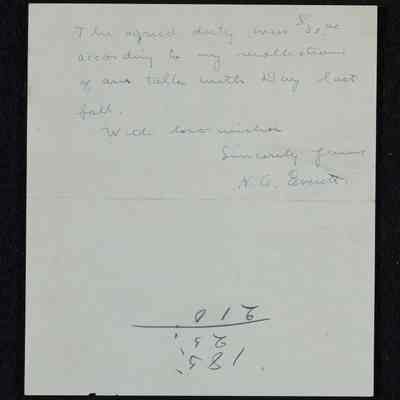 The agreed duty was
according to my recollection
of our talks with Day last
fall.
With best wishes
Sincerely yours
Everett.
185
25
210